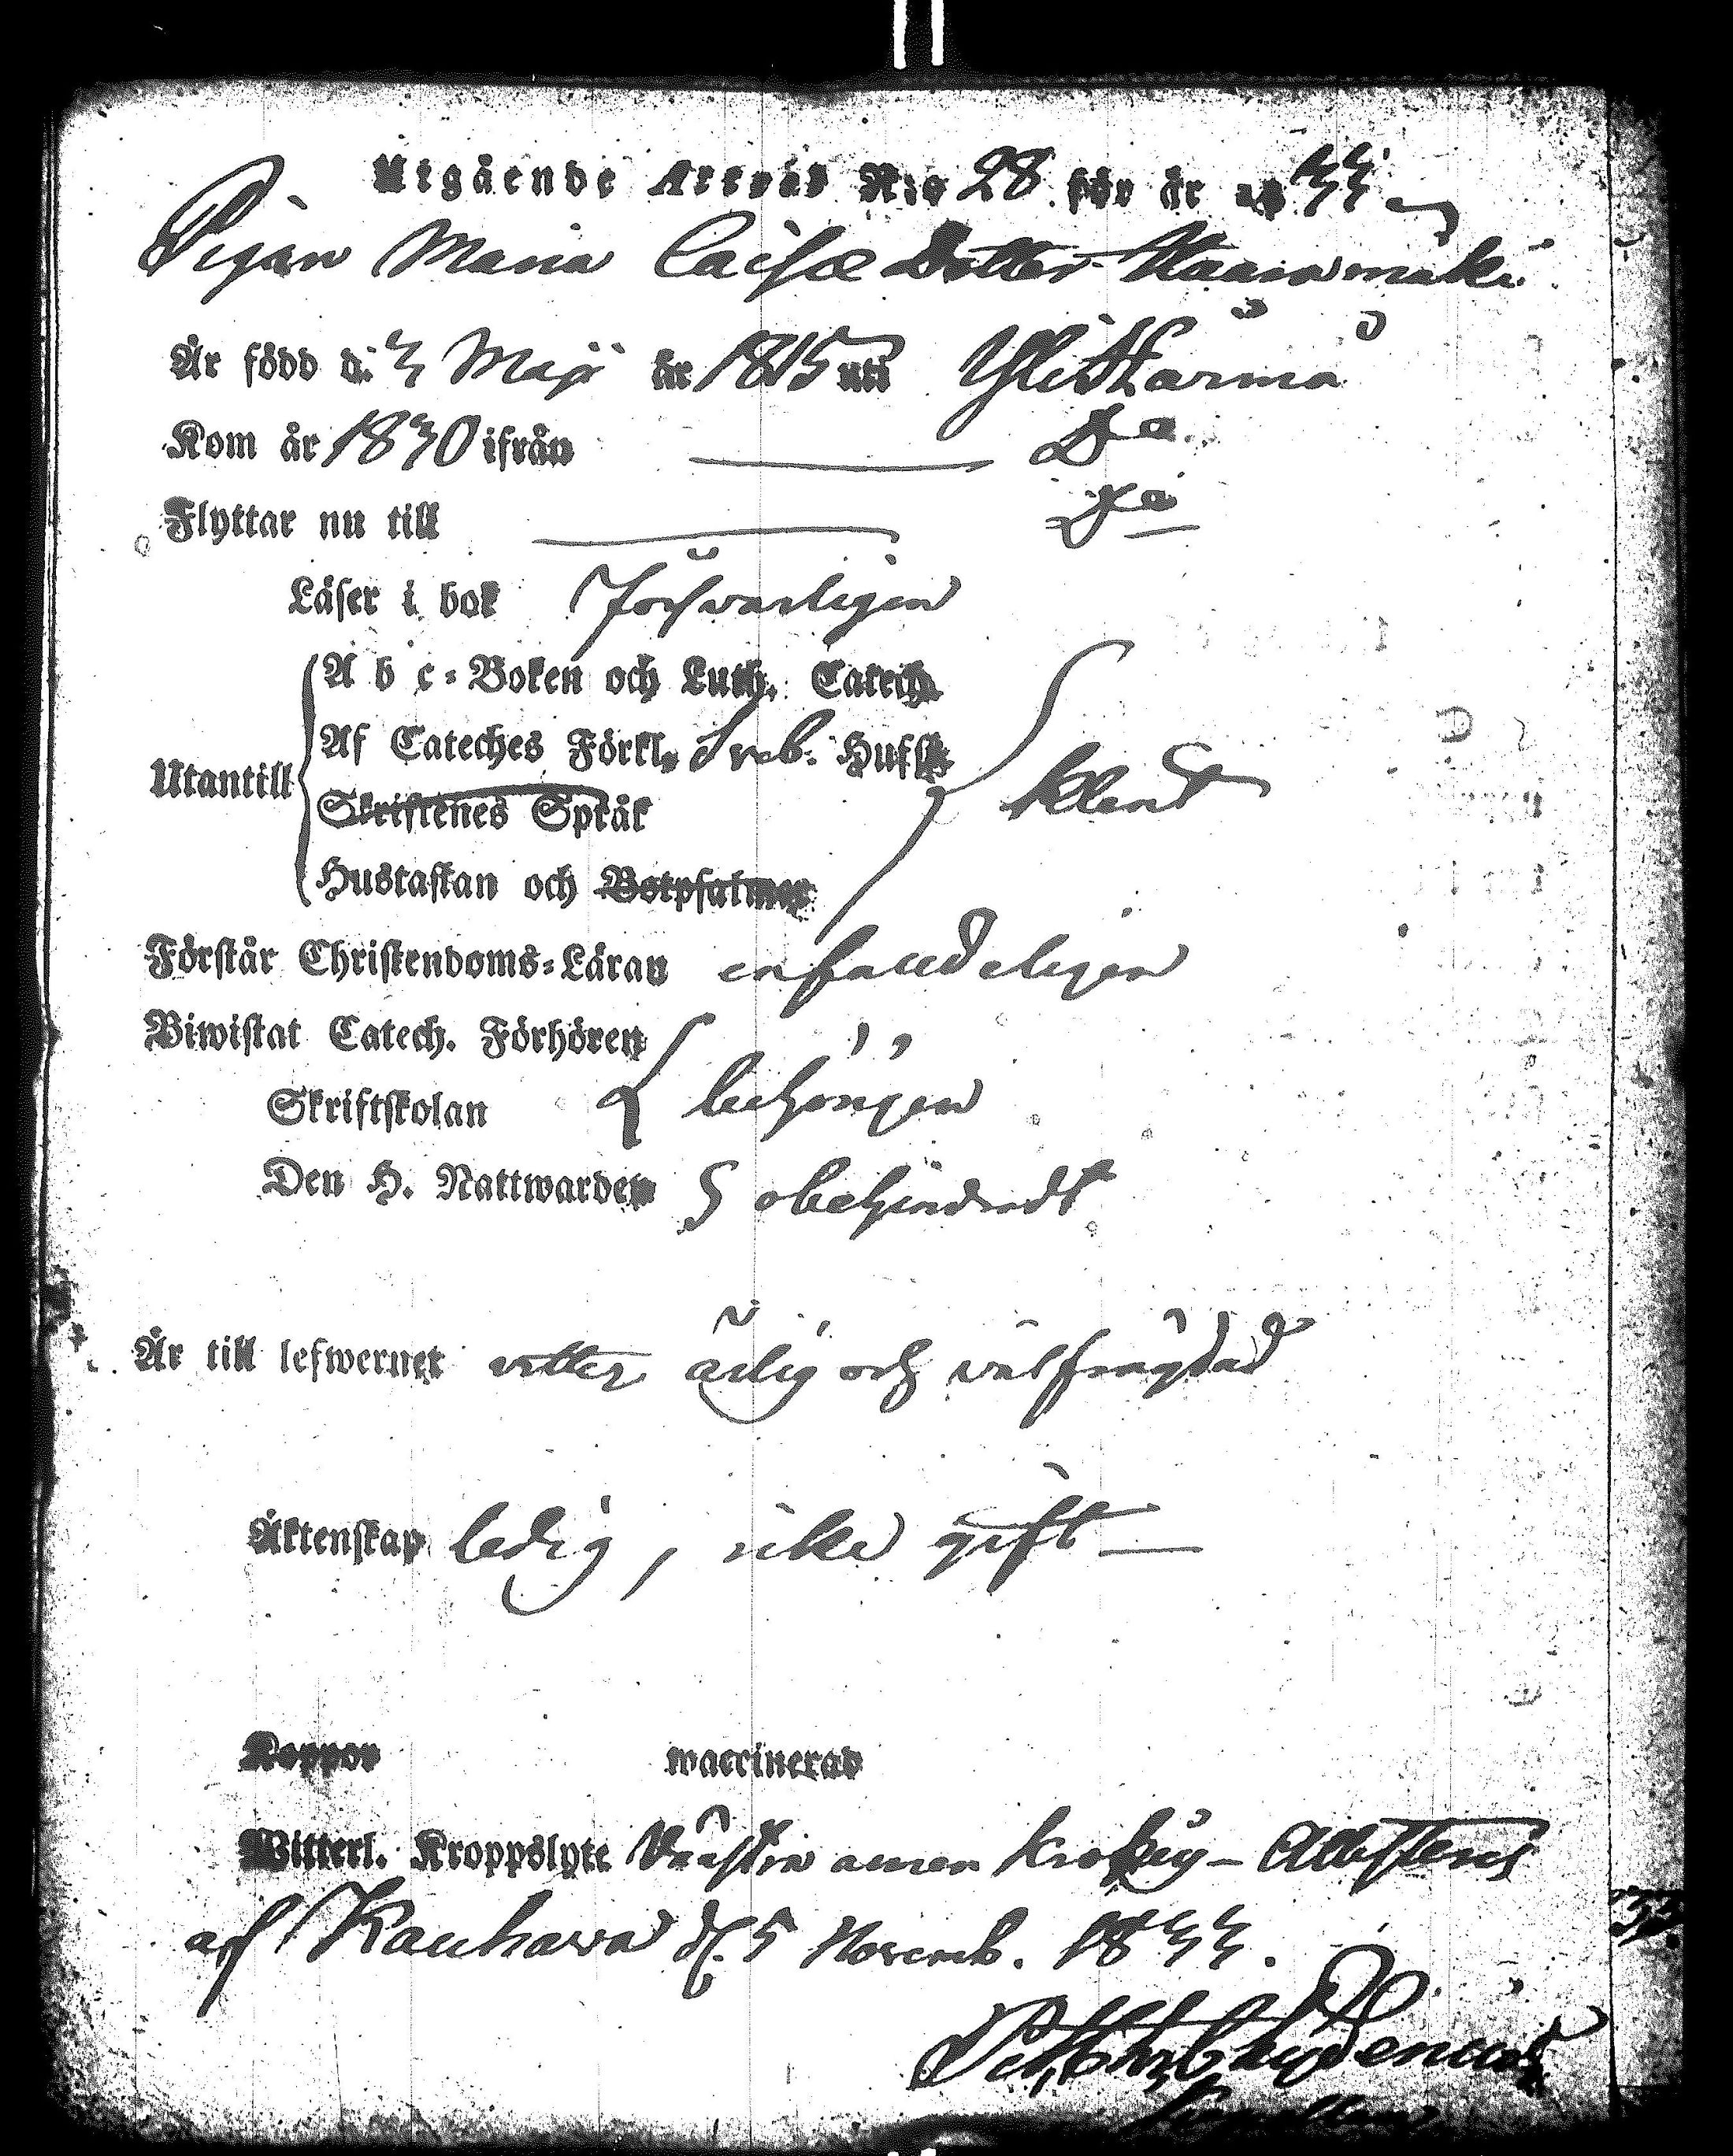 Utgående Attest N:o 28 för år 1833
Pigan Maria Caisa Dotter
Är född d. 3 Maji år 1815 uti Ylistarmå
Kom år 1830 ifrån Do
Flyttar nu till Do
Läser i bok försvarligen
A b c-Boken och Luth. Catech.
Af Cateches Förkl. Sveb. Husfl.
Utantill
Skriftenes Språk
klent
Hustaflan och Botpsalmer
Förstår Christendoms-Läran enfaldeligen
Biwistat Catech. Förhören
Skriftskolan behörigen
Den H. Nattwarden obehindradt
Är till lefwernet ärlig och välfrägdad
Äktenskap ledig, icke gift
Koppor waccinerad
Witterl. Kroppslyte Vänstra armen krokig - Attesteras
af Kauhava d. 5 Novemb. 1833.